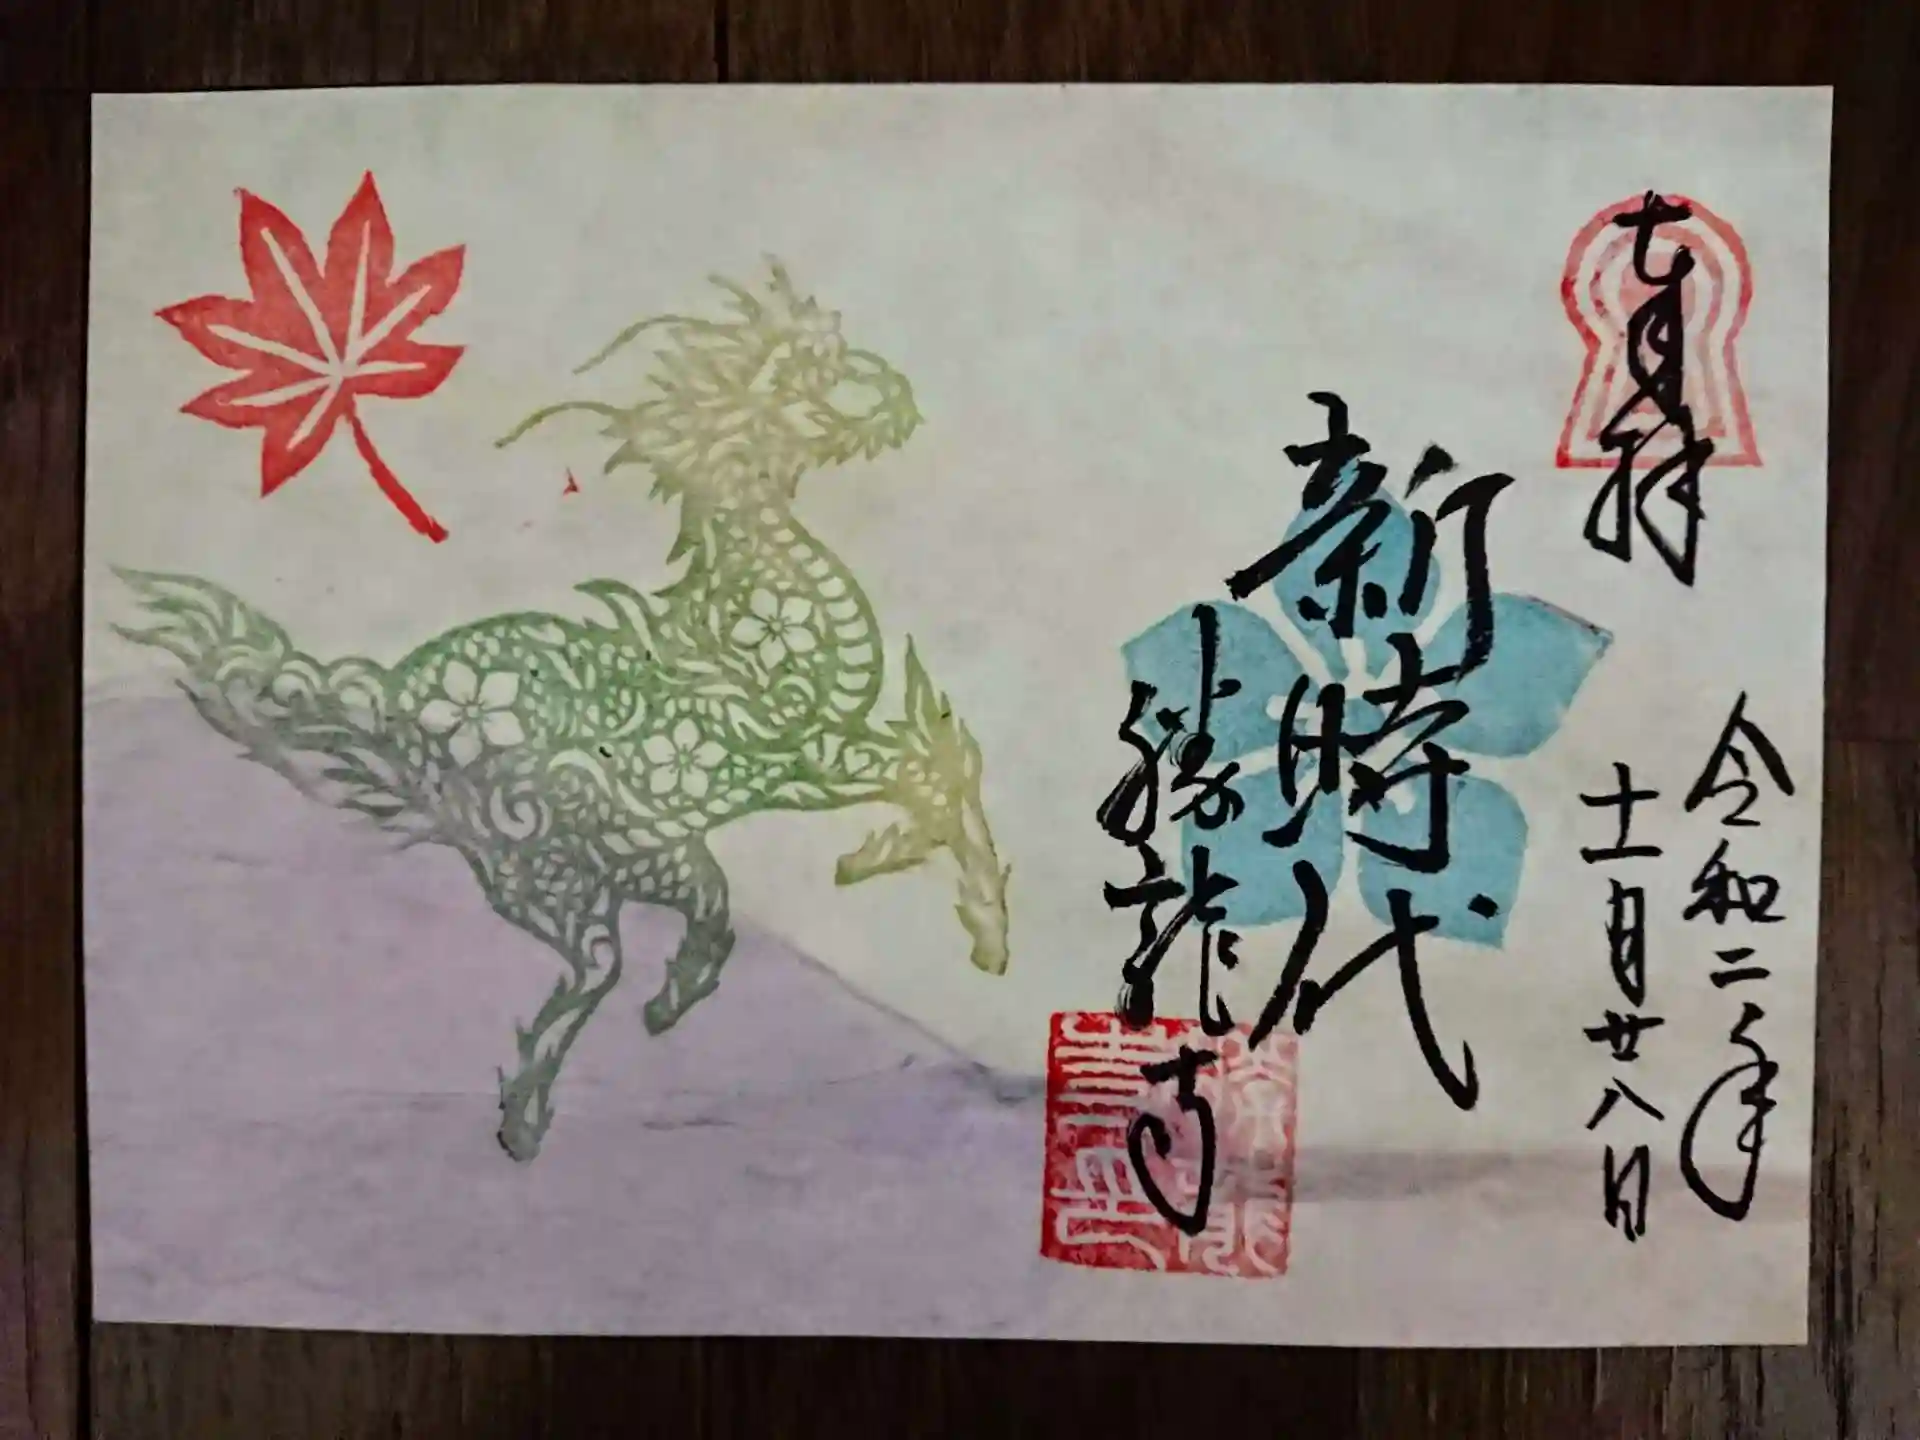 奉拝
令和二年
十一月廿八日
新時代
勝龍寺